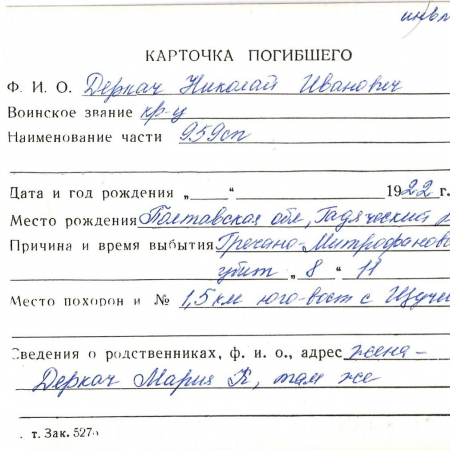 инвл
КАРТОЧКА ПОГИБШЕГО
Ф. И. О. Деркач Николай Иванович
Воинское звание кр-ц
Наименование части 959сп
Дата и год рождения „ “ 1922 г.
Место рождения Полтавская обл, Гадяческий р
Причина и время выбытия Гречано-Митрофанов
убит „ 8 “ 11
Место похорон и № 1,5 км юго-вост с Щуче
Сведения о родственниках, ф. и. о., адрес жена-
Деркач Мария К, там же
. т. Зак. 527